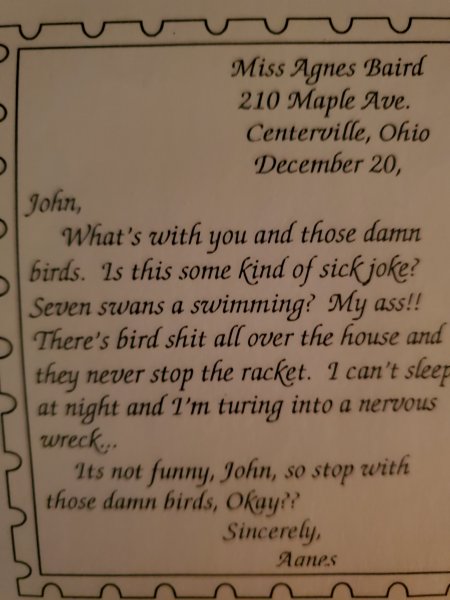 Miss Agnes Baird
210 Maple Ave.
Centerville, Ohio
December 20,
John,
What's with you and those damn
birds. Is this some kind of sick joke?
Seven swans a swimming? My ass!!
There's bird shit all over the house and
they never stop the racket. I can't sleep
at night and I'm turing into a nervous
wreck...
Its not funny, John, so stop with
those damn birds, Okay??
Sincerely,
Agnes